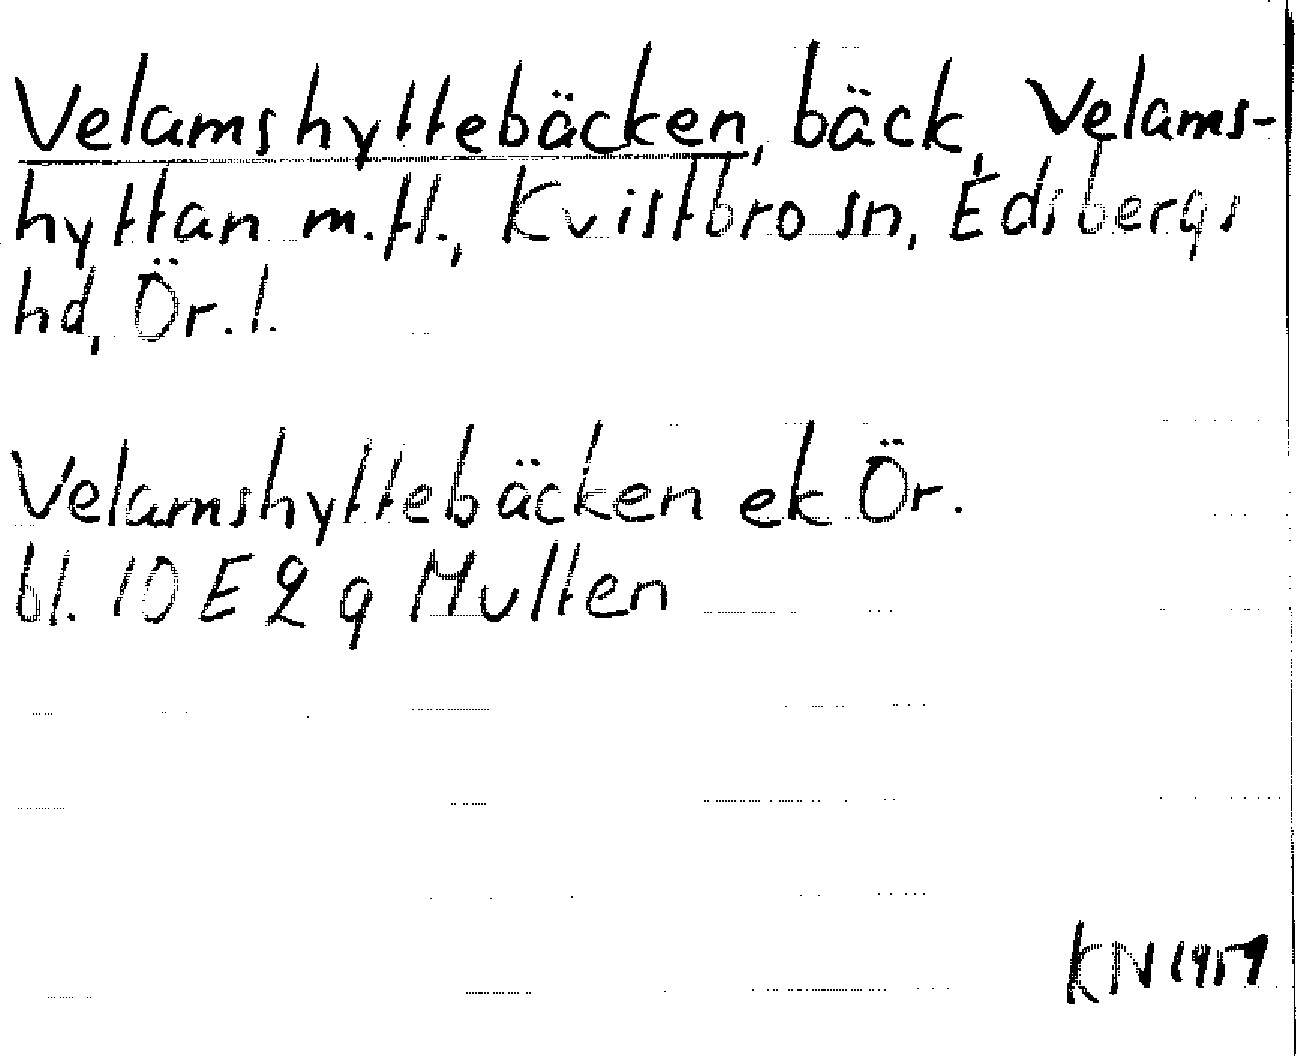 Velamshyttebäcken, bäck, Velams-
hyttan m.fl., Kvistbro sn, Edsbergs
hd, Ör. l.
Velamshyttebäcken ek Ör.
bl. 10 E 2 g Multen
KN